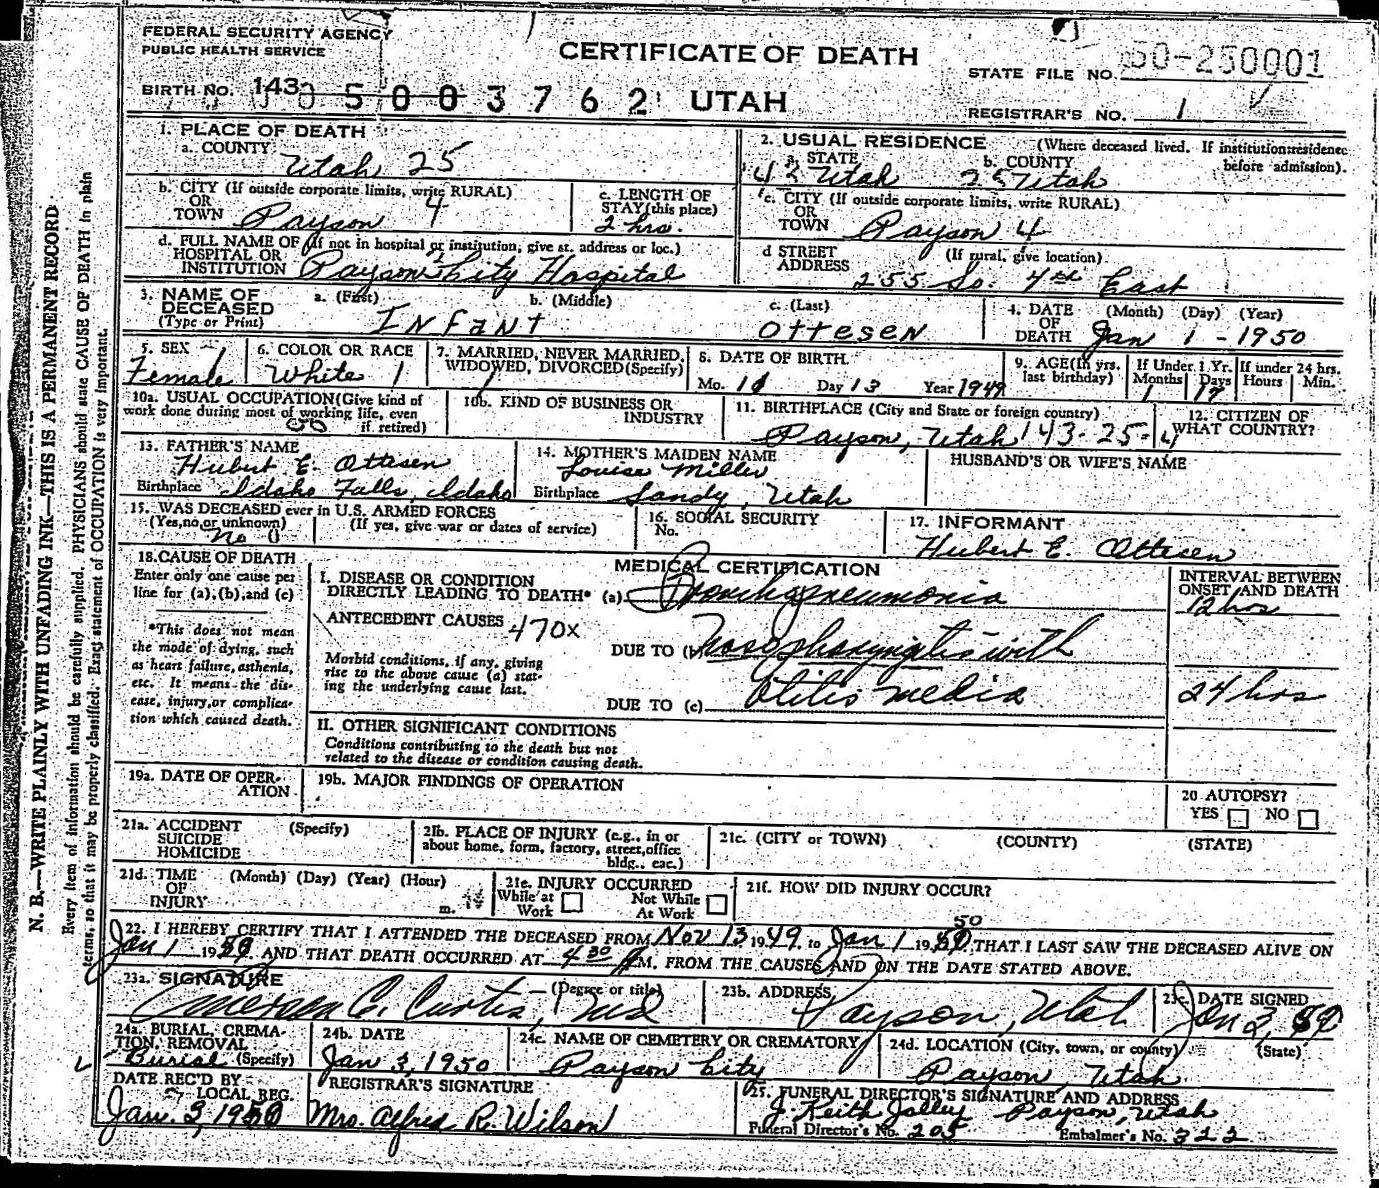 FEDERAL SECURITY AGENCY
PUBLIC HEALTH SERVICE
CERTIFICATE OF DEATH
STATE FILE NO. 50-250001
BIRTH NO. 143 0 5 0 0 3 7 6 2 UTAH
REGISTRAR'S NO. 1
1. PLACE OF DEATH
a. COUNTY Utah 25
2. USUAL RESIDENCE (Where deceased lived. If institution: residence before admission).
a. STATE 43 Utah b. COUNTY 25 Utah
b. CITY (If outside corporate limits, write RURAL) OR TOWN Payson 4
c. LENGTH OF STAY (this place) 2 hrs.
c. CITY (If outside corporate limits, write RURAL) OR TOWN Payson 4
d. FULL NAME OF (If not in hospital or institution, give st. address or loc.) HOSPITAL OR INSTITUTION Payson City Hospital
d STREET ADDRESS (If rural, give location) 255 So. 4th East
3. NAME OF DECEASED (Type or Print) a. (First) Infant b. (Middle) c. (Last) Ottesen
4. DATE OF DEATH (Month) (Day) (Year) Jan 1 - 1950
5. SEX Female 1
6. COLOR OR RACE White 1
7. MARRIED, NEVER MARRIED, WIDOWED, DIVORCED (Specify) 1
8. DATE OF BIRTH Mo. 11 Day 13 Year 1949
9. AGE (In yrs. last birthday)
If Under 1 Yr. Months 1 Days
If under 24 hrs. Hours Min.
10a. USUAL OCCUPATION (Give kind of work done during most of working life, even if retired)
10b. KIND OF BUSINESS OR INDUSTRY
11. BIRTHPLACE (City and State or foreign country) Payson, Utah 143-25-4
12. CITIZEN OF WHAT COUNTRY?
13. FATHER'S NAME Hubert E. Ottesen
Birthplace Idaho Falls, Idaho
14. MOTHER'S MAIDEN NAME Louise Miller
Birthplace Sandy, Utah
HUSBAND'S OR WIFE'S NAME
15. WAS DECEASED ever in U.S. ARMED FORCES
(Yes, no, or unknown) No 0 (If yes, give war or dates of service)
16. SOCIAL SECURITY No.
17. INFORMANT Hubert E. Ottesen
18. CAUSE OF DEATH
Enter only one cause per line for (a), (b), and (c)
*This does not mean the mode of dying, such as heart failure, asthenia, etc. It means the disease, injury, or complication which caused death.
MEDICAL CERTIFICATION
I. DISEASE OR CONDITION DIRECTLY LEADING TO DEATH* (a) Bronchopneumonia
INTERVAL BETWEEN ONSET AND DEATH 12 hrs
ANTECEDENT CAUSES 470x
Morbid conditions, if any, giving rise to the above cause (a) stating the underlying cause last.
DUE TO (b) Nasopharyngitis with
DUE TO (c) Otitis media 24 hrs
II. OTHER SIGNIFICANT CONDITIONS
Conditions contributing to the death but not related to the disease or condition causing death.
19a. DATE OF OPERATION
19b. MAJOR FINDINGS OF OPERATION
20 AUTOPSY? YES NO
21a. ACCIDENT SUICIDE HOMICIDE (Specify)
21b. PLACE OF INJURY (e.g., in or about home, form, factory, street, office bldg., eac.)
21c. (CITY or TOWN) (COUNTY) (STATE)
21d. TIME OF INJURY (Month) (Day) (Year) (Hour) m.
21e. INJURY OCCURRED While at Work Not While At Work
21f. HOW DID INJURY OCCUR?
22. I HEREBY CERTIFY THAT I ATTENDED THE DECEASED FROM Nov 13 1949, to Jan 1 1950 50, THAT I LAST SAW THE DECEASED ALIVE ON
Jan 1 1950 AND THAT DEATH OCCURRED AT 4:30 M. FROM THE CAUSES AND ON THE DATE STATED ABOVE.
23a. SIGNATURE (Degree or title) C. Curtis, Md
23b. ADDRESS Payson, Utah
23c. DATE SIGNED Jan 2, 50
24a. BURIAL, CREMATION, REMOVAL (Specify) Burial
24b. DATE Jan 3, 1950
24c. NAME OF CEMETERY OR CREMATORY Payson City
24d. LOCATION (City, town, or county) (State) Payson, Utah.
DATE REC'D BY LOCAL REG. Jan. 3, 1950
REGISTRAR'S SIGNATURE Mrs. Alfred R. Wilson
25. FUNERAL DIRECTOR'S SIGNATURE AND ADDRESS J. Keith Jolley Payson, Utah
Funeral Director's No. 205 Embalmer's No. 322
N. B.—WRITE PLAINLY WITH UNFADING INK—THIS IS A PERMANENT RECORD
Every item of information should be carefully supplied. PHYSICIANS should state CAUSE OF DEATH in plain
terms, so that it may be properly classified. Exact statement of OCCUPATION is very important.